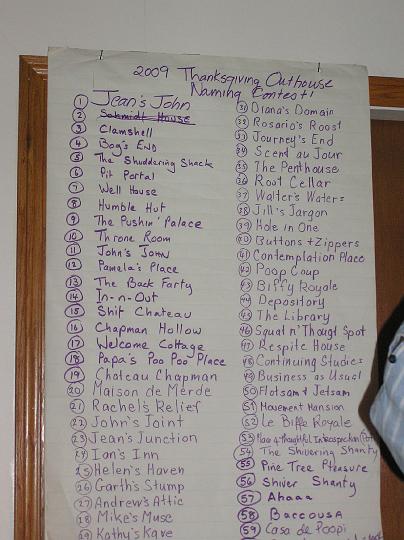 2009 Thanksgiving Outhouse
Naming Contest!
1 Jean's John
2 Schmidt House
3 Clamshell
4 Bog's End
5 The Shuddering Shack
6 Pit Portal
7 Well House
8 Humble Hut
9 The Pushin' Palace
10 Throne Room
11 John's John
12 Pamela's Place
13 The Back Forty
14 In-n-Out
15 Shit Chateau
16 Chapman Hollow
17 Welcome Cottage
18 Papa's Poo Poo Place
19 Chateau Chapman
20 Maison de Merde
21 Rachel's Relief
22 John's Joint
23 Jean's Junction
24 Ian's Inn
25 Helen's Haven
26 Garth's Stump
27 Andrew's Attic
28 Mike's Muse
29 Kathy's Kave
31 Diana's Domain
32 Rosario's Roost
33 Journey's End
34 Scent au Jour
35 The Penthouse
36 Root Cellar
37 Walter's Waters
38 Jill's Jargon
39 Hole in One
40 Buttons + Zippers
41 Contemplation Place
42 Poop Coup
43 Biffy Royale
44 Depository
45 The Library
46 Squat n' Thought Spot
47 Respite House
48 Continuing Studies
49 Business as Usual
50 Flotsam & Jetsam
51 Movement Mansion
52 Le Biffe Royale
53 & Thoughtful Introspection
54 The Shivering Shanty
55 Pine Tree Pleasure
56 Shiver Shanty
57 Ahaaa
58 Baccousa
59 Casa de Poopi